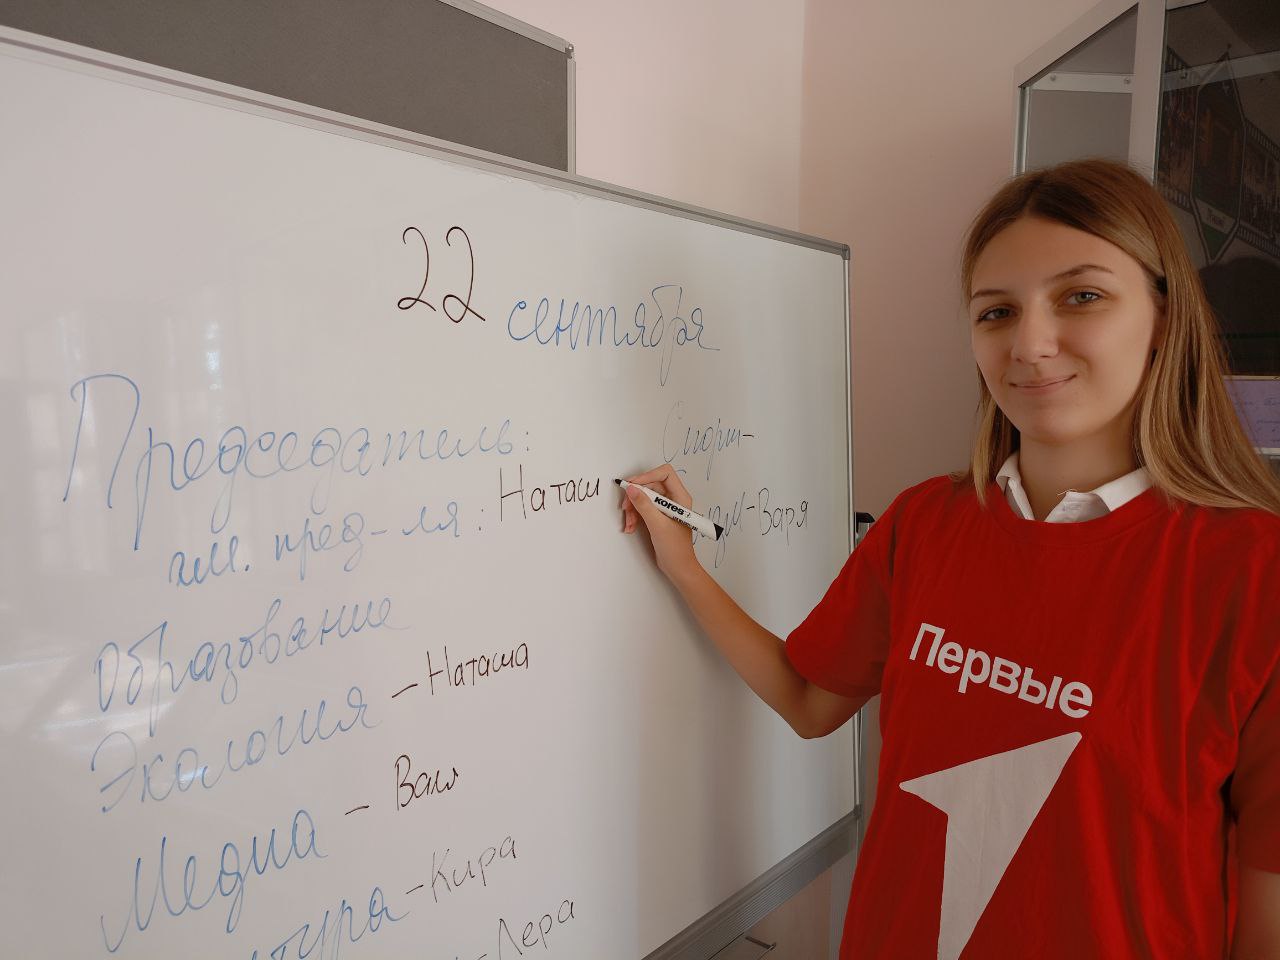 22 сентября
Председатель:
зам. пред-ля: Наташ
Образование
Экология - Наташа
Медиа - Ваня
тура - Кира
- Лера
Спорт-
- Варя
kores
Первые